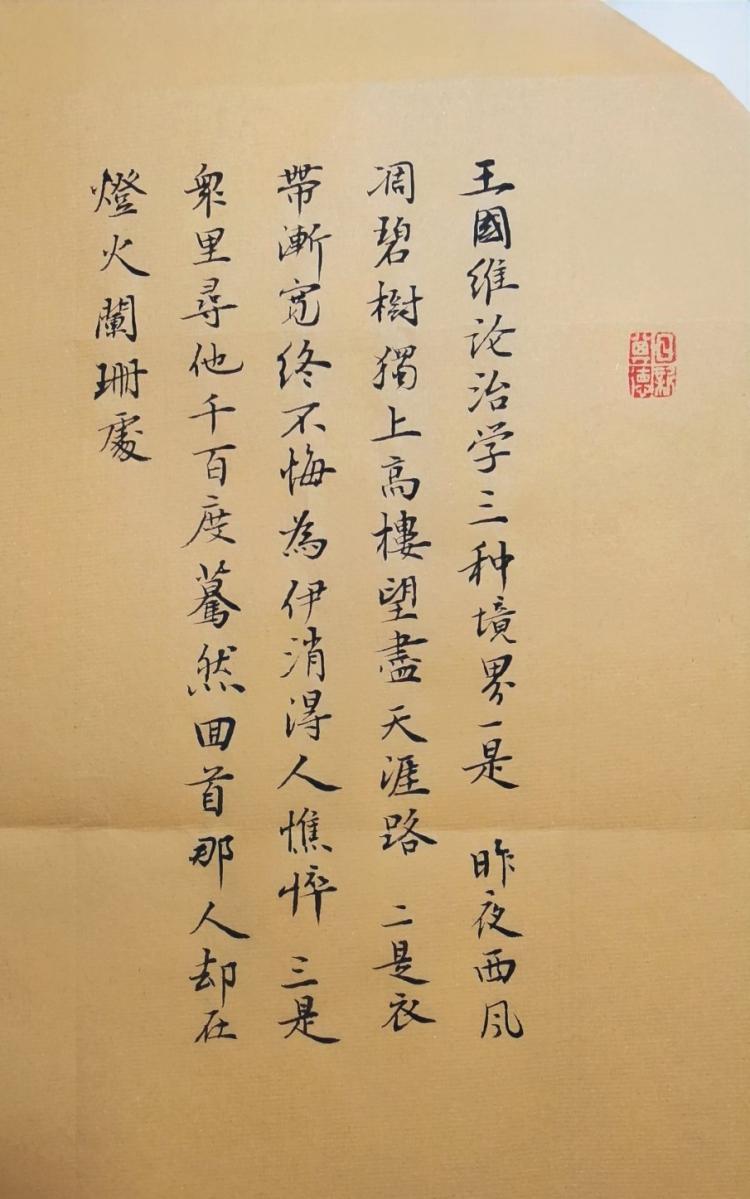 王國维论治学三种境界一是 昨夜西风
凋碧樹獨上高樓望盡天涯路 二是衣
帶漸宽终不悔為伊消得人憔悴 三是
眾里尋他千百度驀然回首那人却在
燈火闌珊處